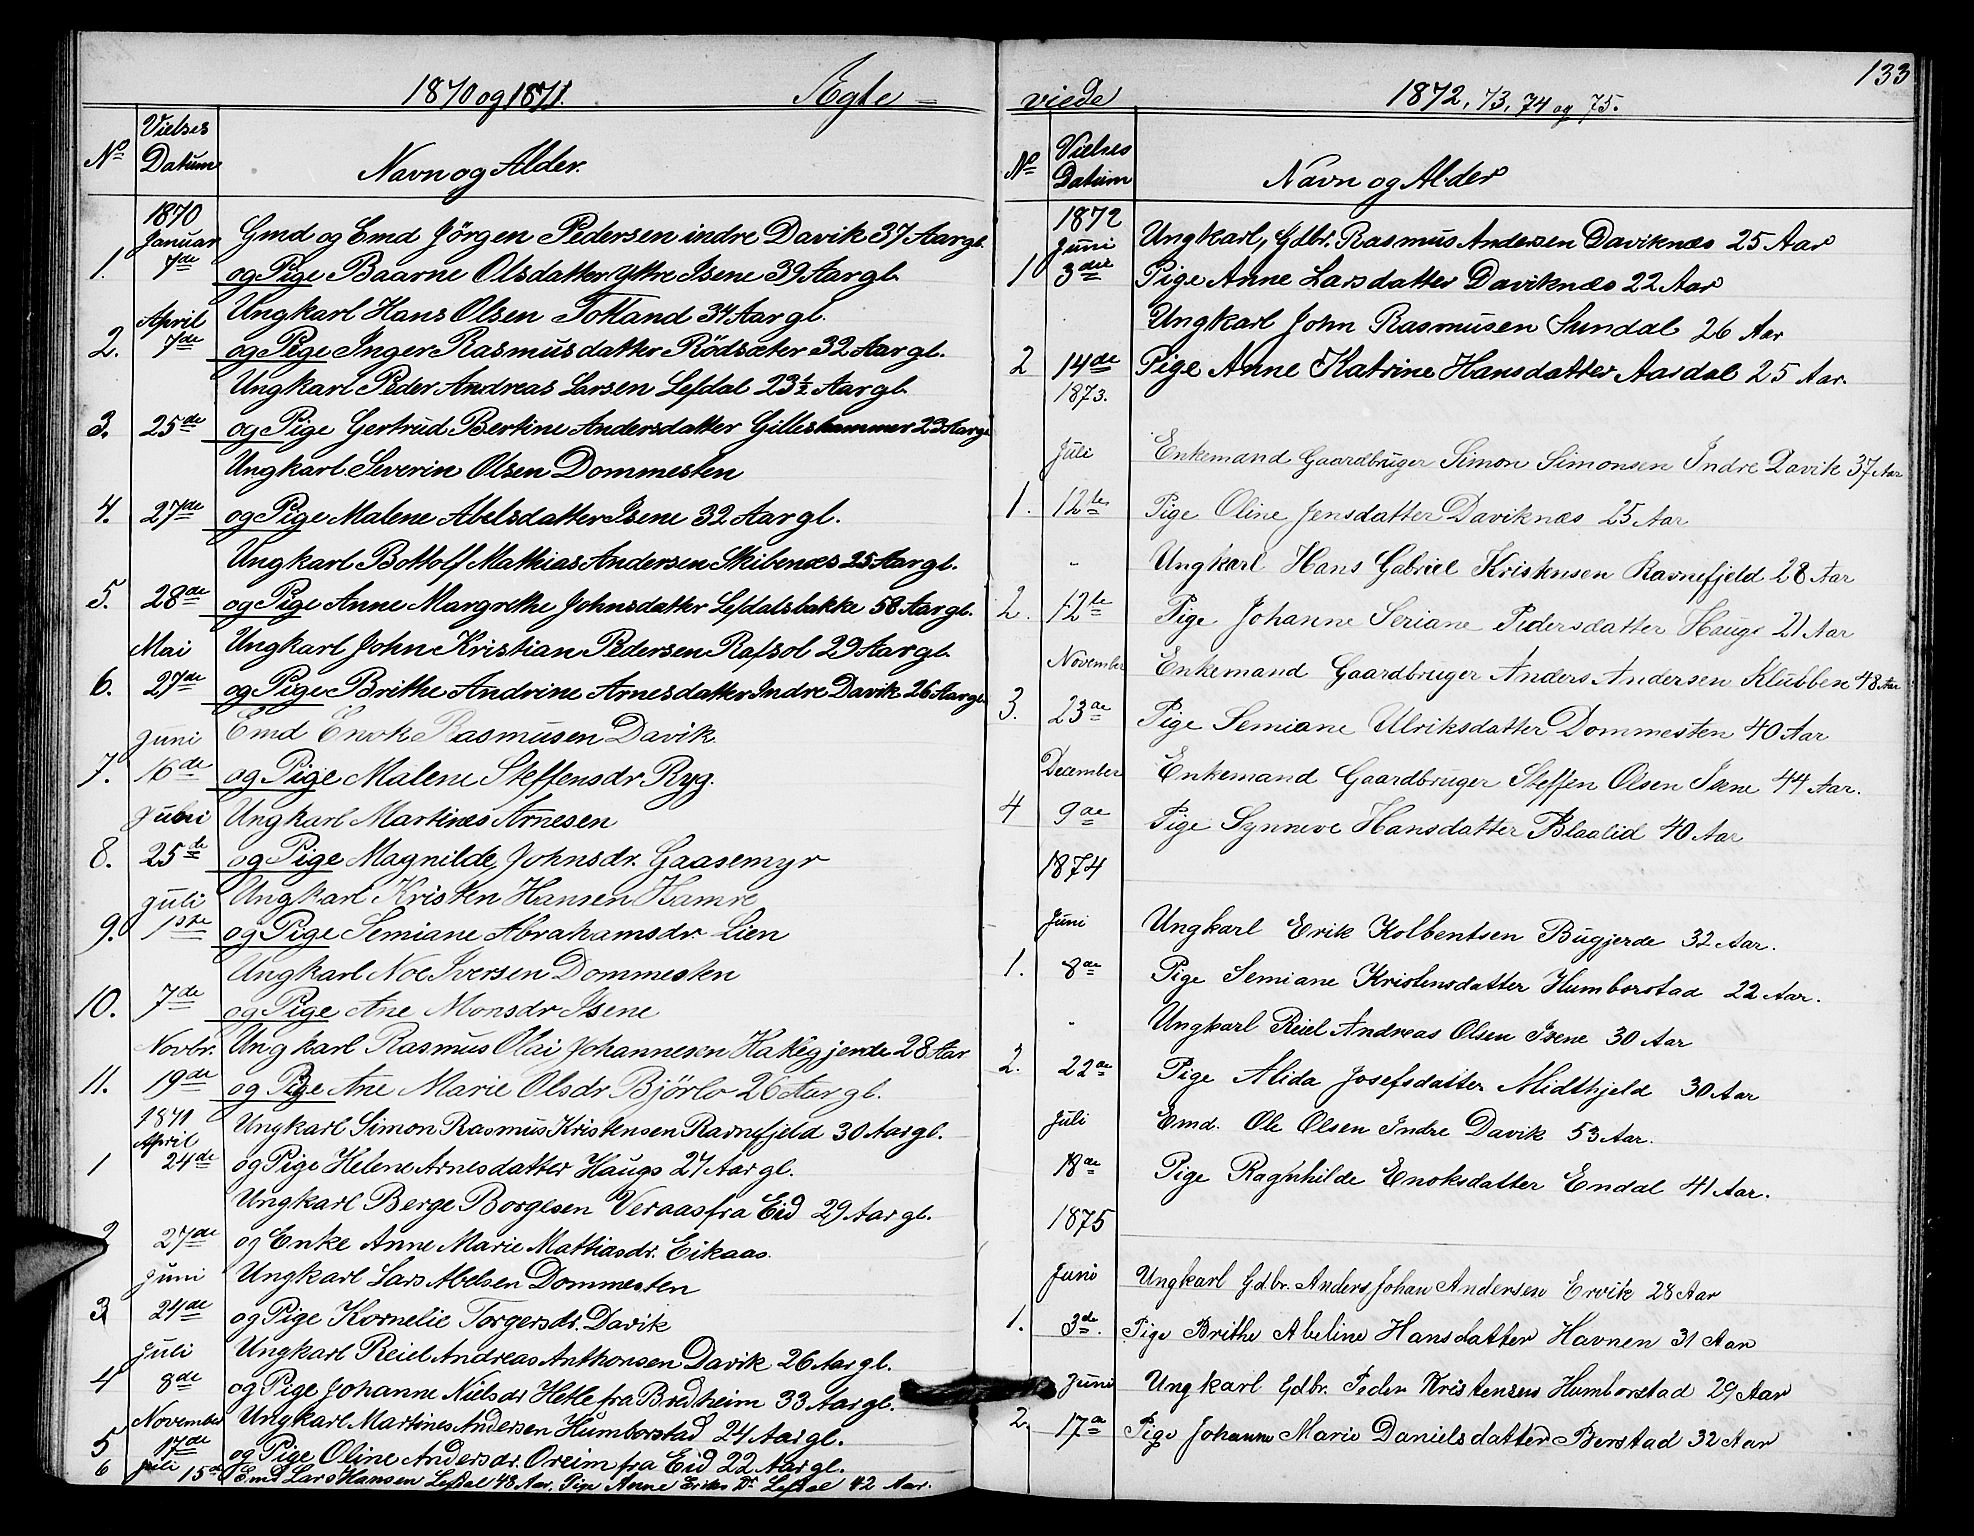 1870 og 1871. Ægte =
No Vielses Datum Navn og Alder.
1870
Januar Gmd og Emd Jörgen Pedersen indre Davik 37 Aar gl.
1. 7de og Pige Baarne Olsdatter Yttre Isene 39 Aar gl.
April Ungkarl Hans Olsen Totland 34 Aar gl.
2. 7de og Pige Inger Rasmusdatter Rödsæter 32 Aar gl.
Ungkarl Peder Andreas Larsen Lefdal 23½ Aar gl.
3. 25de og Pige Gertrud Bertine Andersdatter Gilleshammer 23 Aar gl.
Ungkarl Severin Olsen Dommesten
4. 27de og Pige Malene Abelsdatter Isene 32 Aar gl.
Ungkarl Bottolf Mathias Andersen Skibenæs 25 Aar gl.
5. 28de og Pige Anne Margrethe Johnsdatter Lefdalsbakke 58 Aar gl.
Mai Ungkarl John Kristian Pedersen Rafsol 29 Aar gl.
6. 27de og Pige Brithe Andrine Arnesdatter Indre Davik 26 Aar gl.
Juni Emd Enok Rasmusen Davik.
7. 16de og Pige Malene Steffensdr. Ryg.
Juni Ungkarl Martines Arnesen
8. 25de og Pige Magnilde Johnsdr. Gaasemyr
Juli Ungkarl Kristen Hansen Hamre
9. 1ste og Pige Semiane Abrahamsdr. Lien
Ungkarl Noe Iversen Dommesten
10. 7de og Pige Ane Monsdr Isene
Novbr. Ungkarl Rasmus Olai Johannesen Hakegjerde 28 Aar
11. 19de og Pige Ane Marie Olsdr Bjørlo 26 Aar gl.
1871
April Ungkarl Simon Rasmus Kristensen Ravnefjeld 30 Aar gl.
1 24de og Pige Helene Arnesdatter Haugs 27 Aar gl.
Ungkarl Berge Borgesen Veraas fra Eid 29 Aar gl.
2 27de og Enke Anne Marie Mattiasdr. Eikaas.
Juni Ungkarl Lars Abelsen Dommesten
3 24de og Pige Kornelie Torgersdr. Davik
Juli Ungkarl Reiel Andreas Anthonsen Davik 26 Aar gl.
4 8de og Pige Johanne Nielsdr Hetle fra Bredheim 33 Aar gl.
November Ungkarl Martines Andersen Humborstad 24 Aar gl.
5 17de og Pige Oline Andersdr. Oreim fra Eid 22 Aar gl.
6 Juli 15de Emd Lars Hansen Lefdal 48 Aar. Pige Anne Eriks Dr Lefdal 42 Aar.
133
viede 1872, 73, 74 og 75.
No Vielses Datum Navn og Alder
1872
Juni Ungkarl, Gdbr. Rasmus Andersen Daviknæs 25 Aar
1 3die Pige Anne Larsdatter Daviknæs 22 Aar
Ungkarl John Rasmusen Sundal 26 Aar
2 14de Pige Anne Katrine Hansdatter Aardal 25 Aar.
1873.
Juli Enkemand Gaardbruger Simon Simonsen Indre Davik 37 Aar
1. 12te Pige Oline Jensdatter Daviknæs 25 Aar
" Ungkarl Hans Gabriel Kristensen Ravnefjeld 28 Aar
2. 12te Pige Johanne Seriane Pedersdatter Haugs 21 Aar
November Enkemand Gaardbruger Anders Andersen Klubben 48 Aar
3. 23de Pige Semiane Ulriksdatter Dommesten 40 Aar
December Enkemand Gaardbruger Steffen Olsen Isene 44 Aar.
4 9de Pige Synneve Hansdatter Blaalid 40 Aar
1874
Juni Ungkarl Erik Kolbentsen Bugjerde 32 Aar.
1. 8de Pige Semiane Kristensdatter Humborstad 22 Aar.
" Ungkarl Reiel Andreas Olsen Isene 30 Aar
2. 22de Pige Alida Josefsdatter Midthjeld 30 Aar
Juli Emd. Ole Olsen Indre Davik 53 Aar.
18de Pige Ragnhilde Enoksdatter Endal 41 Aar.
1875
Juni Ungkarl Gdbr. Anders Johan Andersen Ervik 28 Aar
1. 3de. Pige Brithe Abeline Hansdatter Havnen 31 Aar
Juni Ungkarl Gdbr. Peder Kristensen Humborstad 29 Aar
2. 17de Pige Johanne Marie Danielsdatter Berstad 32 Aar